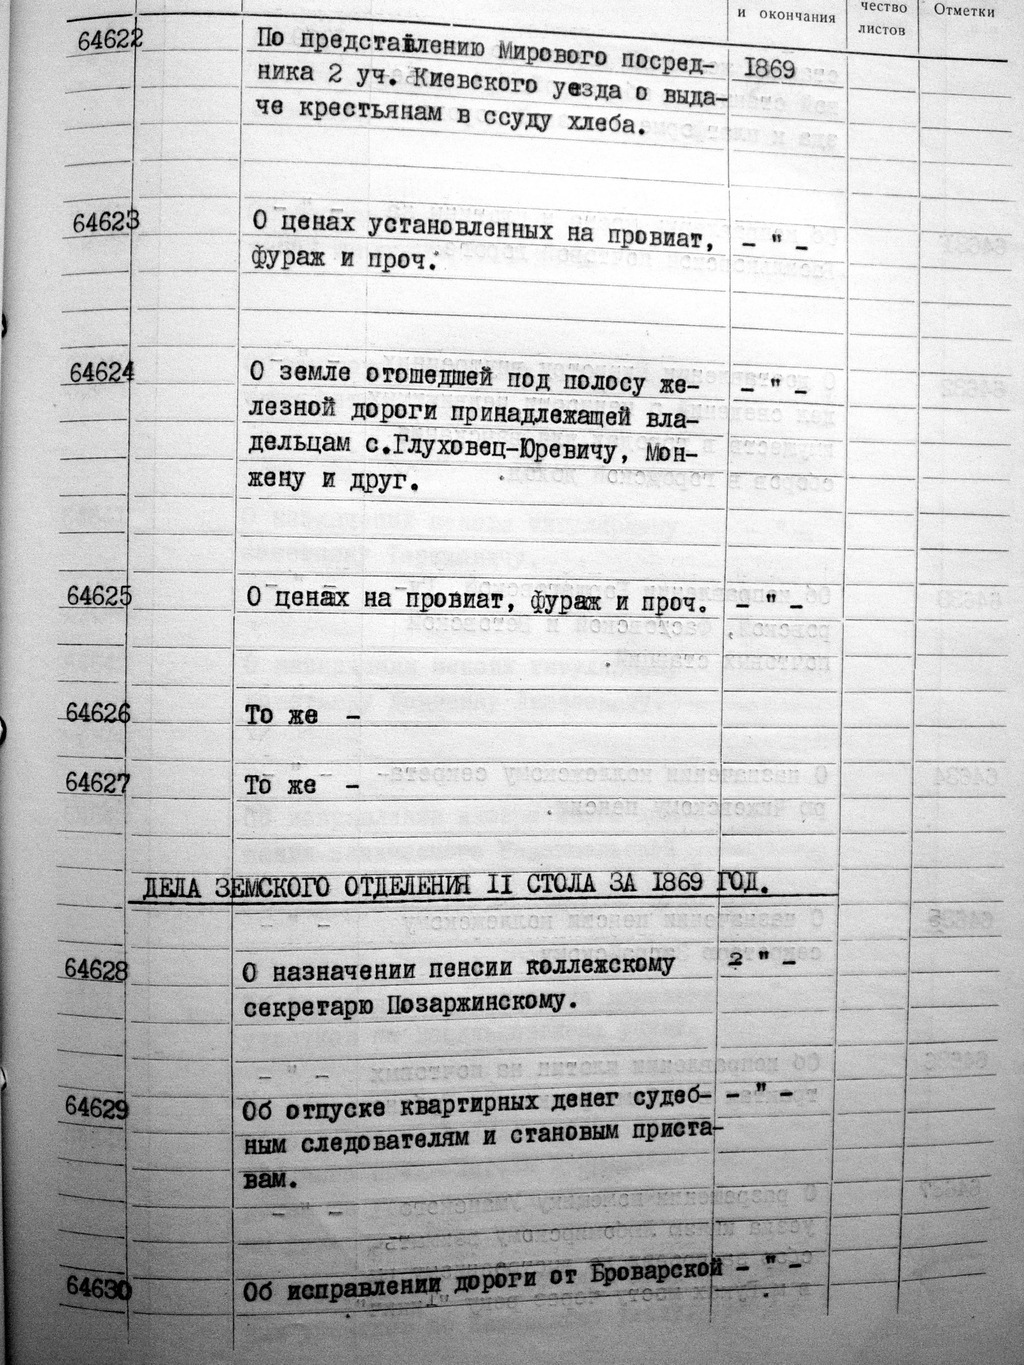 и окончания
чество
листов
Отметки
64622 По представлению Мирового посред- 1869
ника 2 уч. Киевского уезда о выда-
че крестьянам в ссуду хлеба.
64623 О ценах установленных на провиат, - " -
фураж и проч.
64624 О земле отошедшей под полосу же- - " -
лезной дороги принадлежащей вла-
дельцам с.Глуховец-Юревичу, Мон-
жену и друг.
64625 О ценах на провиат, фураж и проч. - " -
64626 То же -
64627 То же -
ДЕЛА ЗЕМСКОГО ОТДЕЛЕНИЯ II СТОЛА ЗА 1869 ГОД.
64628 О назначении пенсии коллежскому 2 " -
секретарю Позаржинскому.
64629 Об отпуске квартирных денег судеб- - " -
ным следователям и становым приста-
вам.
64630 Об исправлении дороги от Броварской - " -